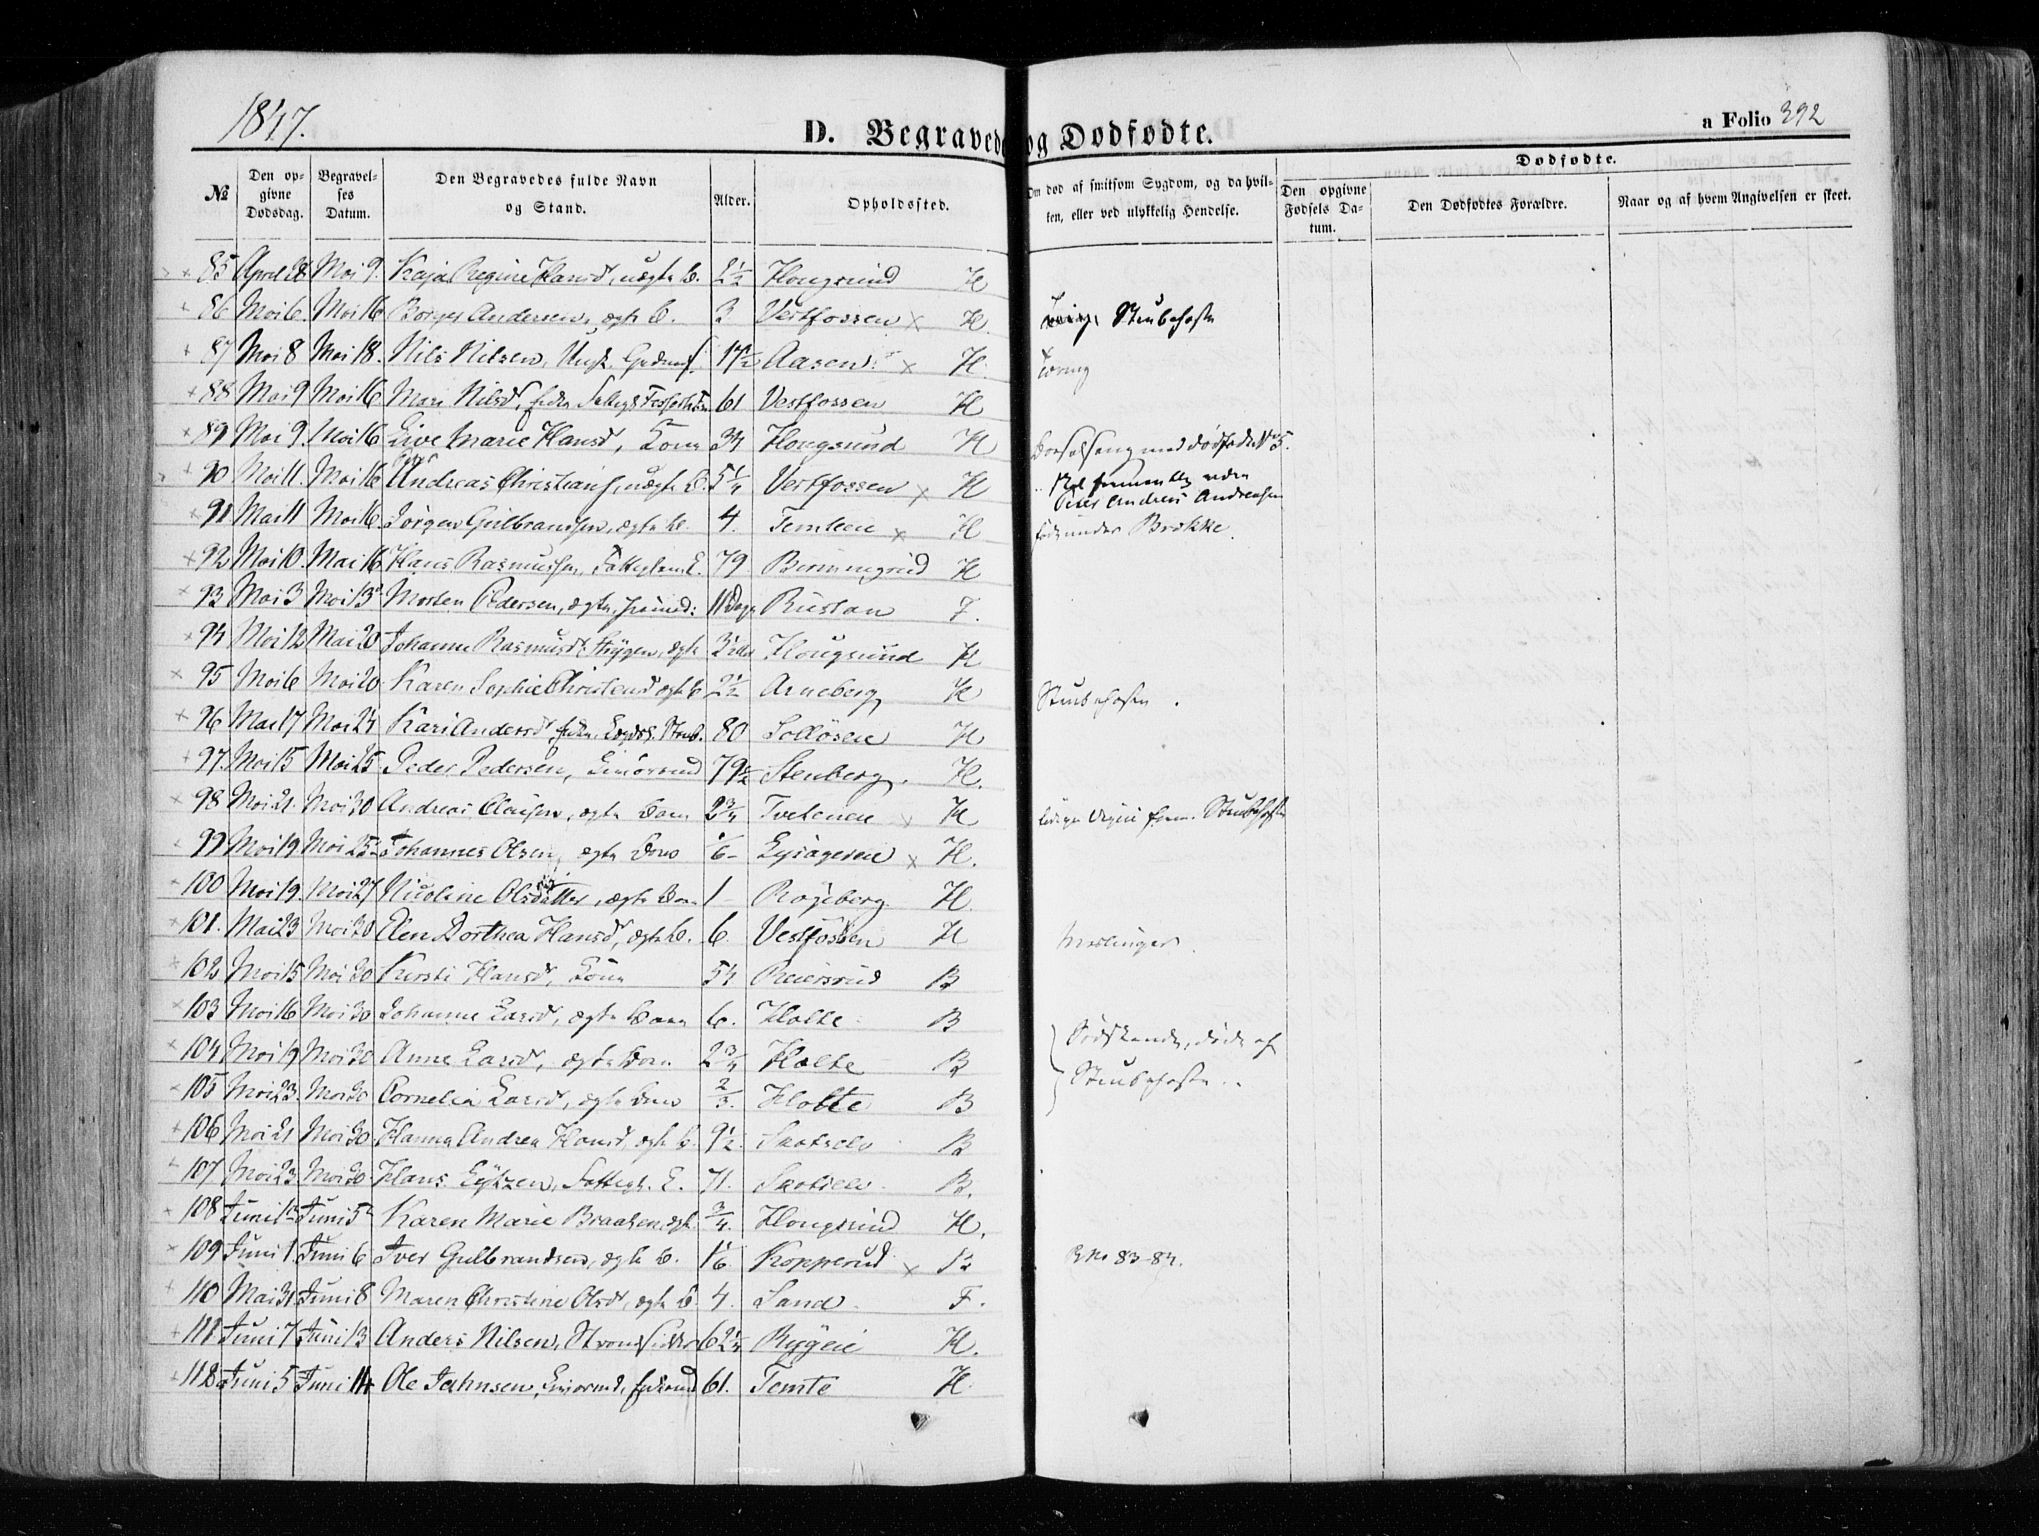 1847.
D. Begravede og Dødfødte.
a Folio 392
№
Den opgivne Dødsdag.
Begravelses Datum.
Den Begravedes fulde Navn og Stand.
Alder.
Opholdssted.
Om død af smitsom Sygdom, og da hvilken, eller ved ulykkelig Hendelse.
Dødfødte.
Den opgivne Fødsels Datum.
Den Dødfødtes Forældre.
Naar og af hvem Angivelsen er skeet.
85 April 28 Mai 9. Kaja Regine Hansd, uægte B. 2½ Hougsund H
86 Mai 6. Mai 16 Borger Andersen, ægte B. 3 Vestfossen × H. Strubehoste
87 Mai 8 Mai 18. Nils Nilsen, Ungk. 17½ Aasen × H. Tæring
88 Mai 9 Mai 16 Mari Nilsd, 61 Vestfossen H
89 Mai 9. Mai 16 Live Marie Hansd, Kone 34 Hougsund H Barselseng med dødfødt N 5.
90 Mai 11. Mai 16 Peter Andreas Christians, uægte B. 5¼ Vestfossen × H
Peter Andreas Andreasen
91 Mai 11 Mai 16 Jørgen Gulbrandsen, ægte B. 4. Temteeie × H under Brække.
92 Mai 10. Mai 16 Hans Rasmussen, Fattiglem E. 79 H
93 Mai 3 Mai 13 Morten Pedersen, ægte, 11 Dage Rustan F.
94 Mai 12 Mai 20 Johanne Rasmusd ægte Hougsund H
95 Mai 6 Mai 20 Karen Sophie Christensd ægte B 2½ Arneberg H Strubehoste.
96 Mai 17 Mai 24 Kari Andersd 80 Solløseie H
97. Mai 15 Mai 25 Peder Pedersen, 79½ Stenberg. H.
98 Mai 21. Mai 30 Andreas Clausen, ægte Barn 2¾ Tveteneie × H Strubehoste
99 Mai 19. Mai 25 Johannes Olsen, ægte Barn Lysagereie × H.
100 Mai 19. Mai 27 Nicoline Olsdatter, ægte Barn 1 Røjeberg. H.
101. Mai 23 Mai 30 Elen Dorthea Hansd, ægte B. 6. Vestfossen H Meslinger.
102 Mai 15 Mai 30 Kirsti Hansd, Kone 54 Reiersrud B
103 Mai 16 Mai 30 Johanne Larsd, ægte Barn 6. Holte B
104 Mai 19 Mai 30 Anne Larsd, ægte Barn. 2¾ Holte B Sødskende, døde af
105 Mai 23. Mai 30 Cornelia Larsd, ægte Barn ⅔. Holte B Strubehoste.
106 Mai 21 Mai 30 Hanna Andrea Hansd, ægte B. 9½. Skotselv B
107 Mai 23 Mai 30 Hans Lytzen, Fattigl. E. 71. Skotselv B.
108 Juni 1 Juni 5 Karen Marie Braatsen, ægte ¾. Hougsund H.
109 Juni 1. Juni 6 Iver Gulbrandsen, ægte B. 1/6. Kopperud × B No 83-84.
110 Mai 31 Juni 8 Maren Christine Olsd, ægte B. 4. Sand F.
111 Juni 7 Juni 13 Anders Nilsen, 62¼ Bygeie H.
112 Juni 5 Juni 14 Ole Jahnsen, 61. Temte H.